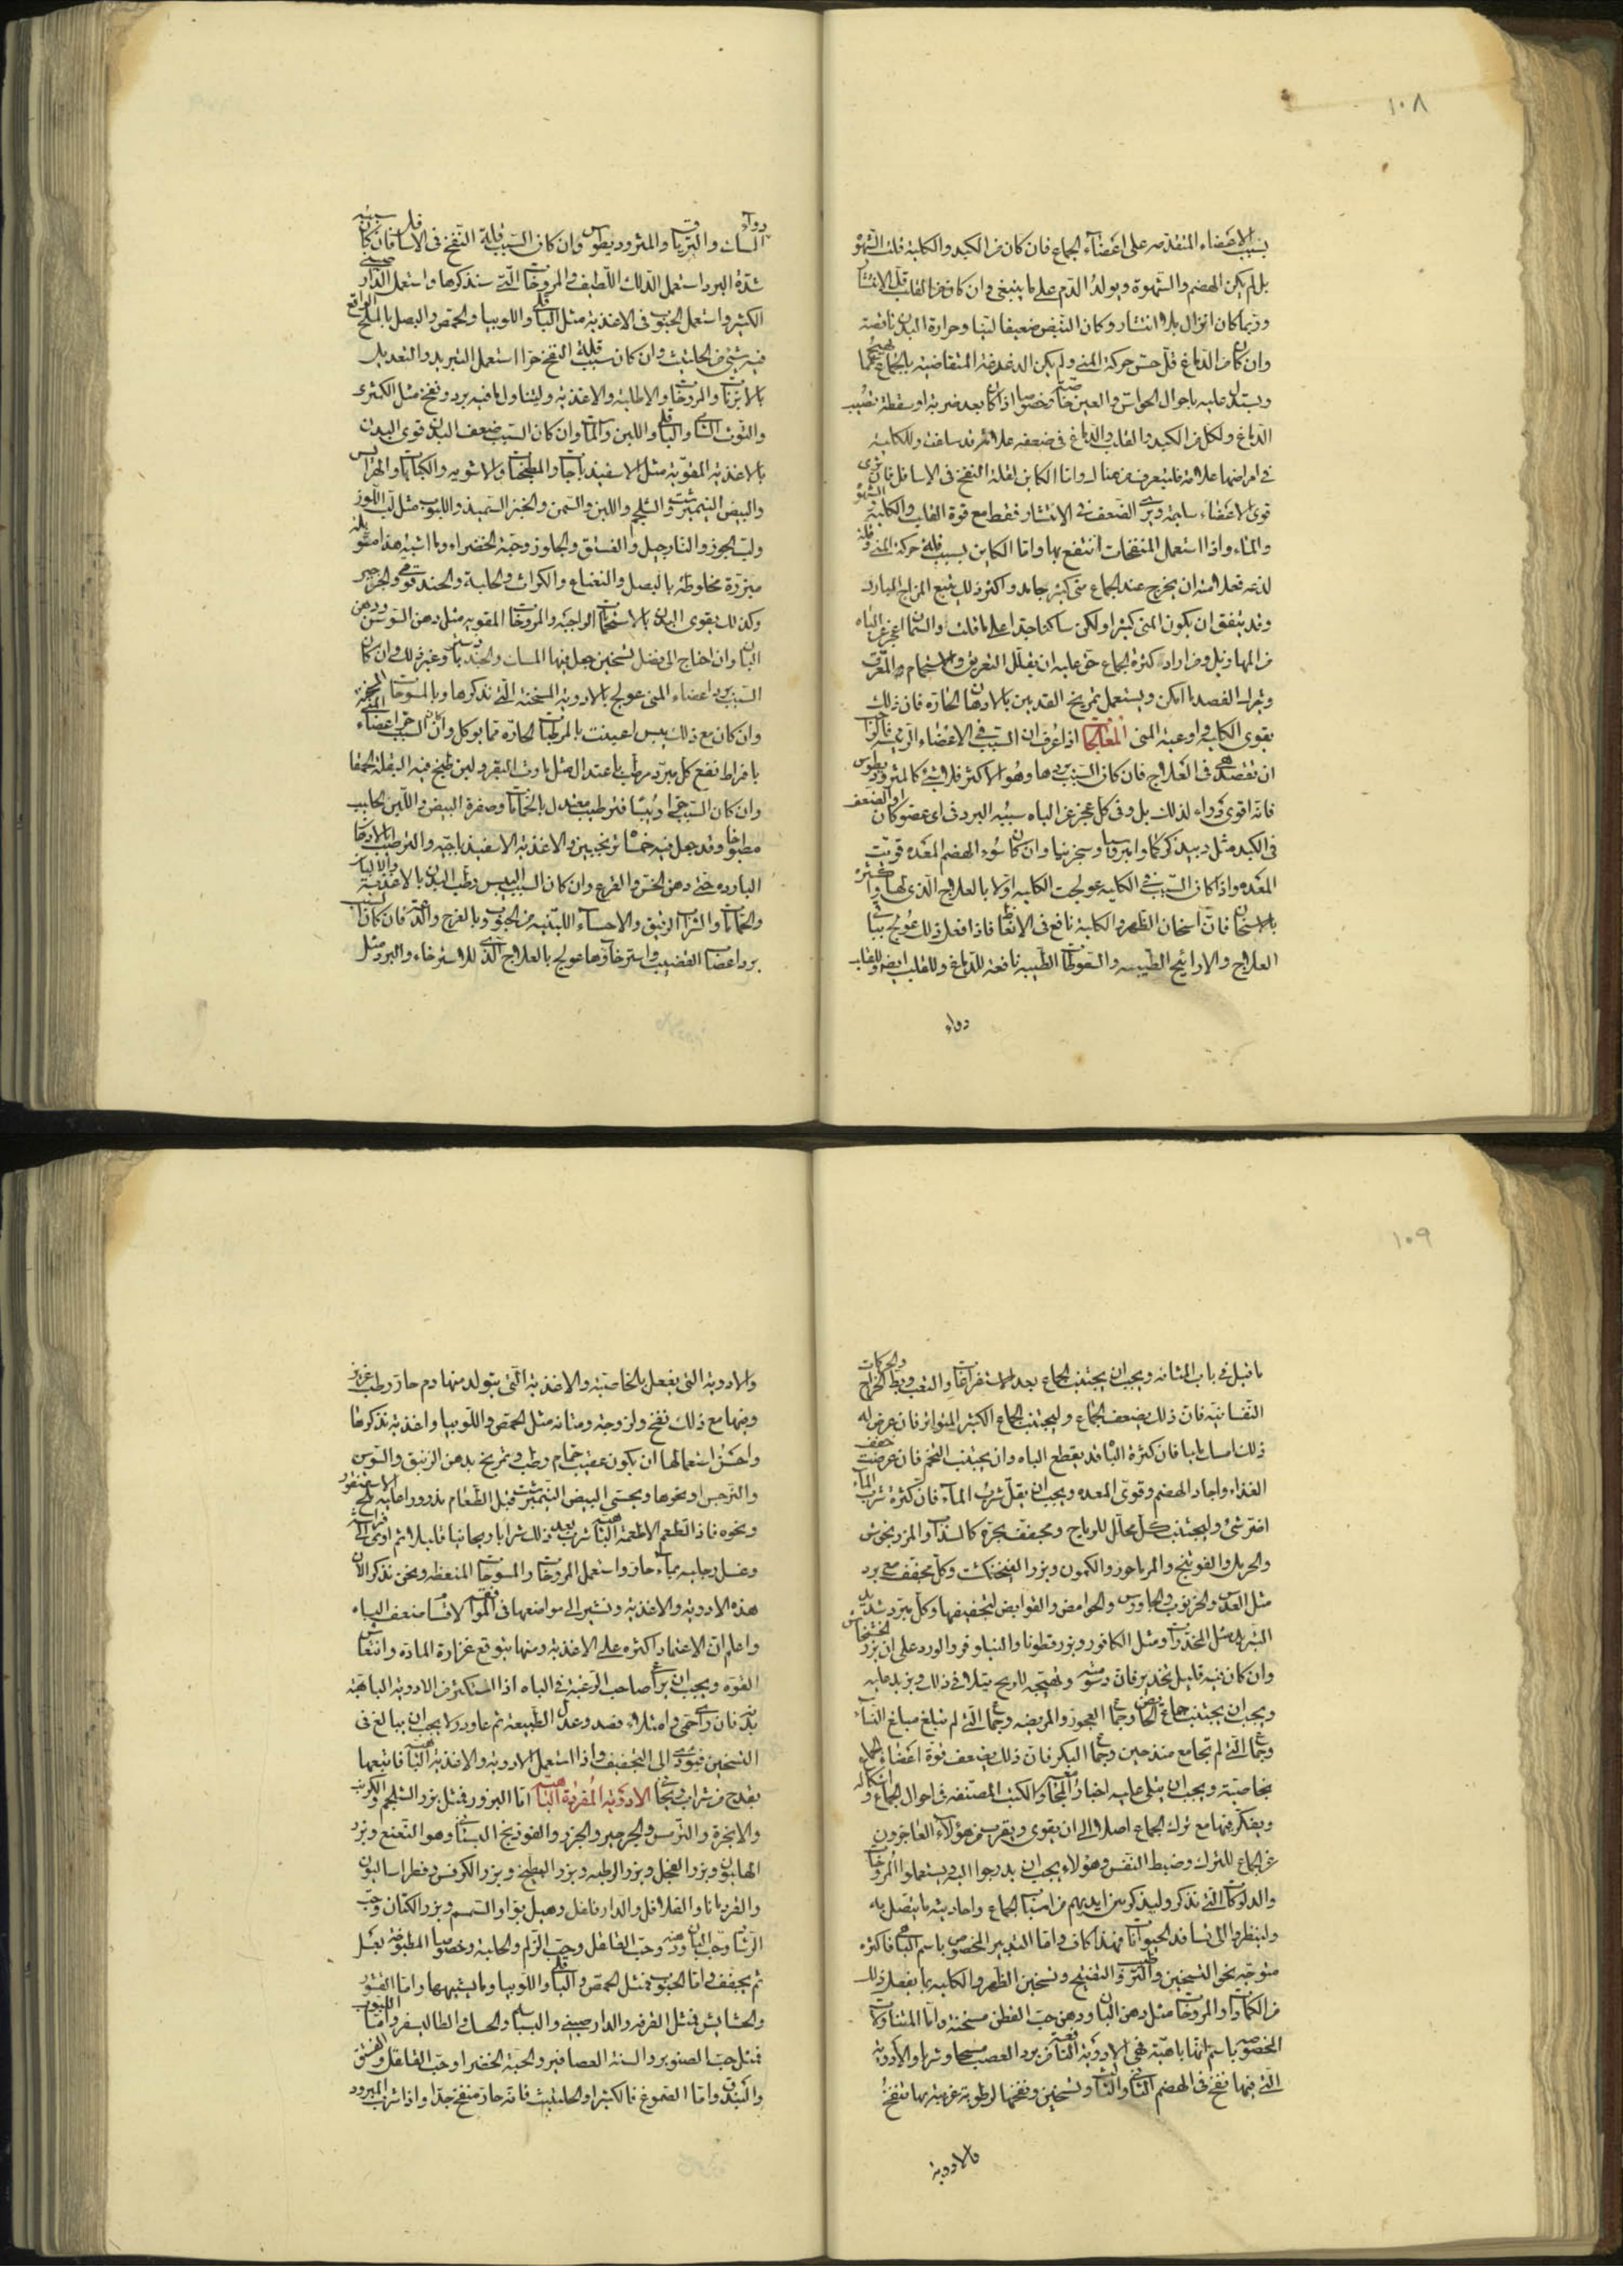 ١٠٨
بسبب الاعضاء المتقدمه على اعضاء الجماع فان كان من الكبد والكلية قلت الشهوة
بل لم يكن الهضم والشهوة ويولد الدم على ما ينبغى وان كان من القلب قل الانتشار
وربما كان انزال بلا انتشار وكان النبض ضعيفا لينا وحرارة البدن ناقصة
وان كان من الدماغ قل حس حركة المنى ولم يكن الدغدغة المتقاضية بالجماع
ويستدل عليه باحوال الحواس والعين خاصة وخصوصا اذا كان بعد ضربة او سقطة تصيب
الدماغ ولكل من الكبد والقلب والدماغ فى ضعفه علامة قد سلفت وللكلية
فى امراضها علامة فليتعرف من هناك واما الكاين لقلة النفخ فى الاسافل فان ترى
قوى الاعضاء سليمة وترى الضعف فى الانتشار فقط مع قوة القلب والكلية
والماء واذا استعمل المنفخات انتفع بها واما الكاين بسبب قلة حركة المنى وقلة
لذعه فعلامته ان يخرج عند الجماع منى كثير جامد واكثر ذلك يتبع المزاج البارد
وقد يتفق ان يكون المنى كثيرا ولكن ساكنا جدا على ما قلت والسمان اعجز عن الباه
من المهازيل ومن اراد كثرة الجماع حق عليه ان يقلل التعريق والاستحمام المعرق
ويترك الفصد ما امكن ويستعمل تمريخ القدمين بالادهان الحارة فان ذلك
يقوى الكلى واوعية المنى المعالجات اذا عرف ان السبب فى الاعضاء الرئيسة فالواجب
ان تقصد هى فى العلاج فان كان السبب بردها وهو الاكثر فلا شئ كالمثروديطوس
فانه اقوى دواء لذلك بل وفى كل عجز عن الباه سببه البرد فى اى عضو كان
فى الكبد مثل دبيد كركم وامروسيا وسجزنيا وان كان سوء الهضم المعدة قويت
المعدة واذا كان السبب فى الكلية عولجت الكلية اولا بالعلاج الذى لها
بالاسخان فان اسخان الظهر والكلية نافع فى الانعاظ فاذا فعل ذلك عولج بباقى
العلاج والاراييح الطيبة والسعوطات الطيبة نافعة للدماغ وللقلب ايضا وللقلب
دواء
المسك والترياق والمثروديطوس وان كان السبب قلة النفخ فى الاسافل فان كان سببه
شدة البرد استعمل الدلك اللطيف والمروخات التى سنذكرها واستعمل الدارصينى
الكثير واستعمل الحبوب فى الاغذية مثل الباقلى واللوبيا والحمص والبصل بالملح الواقع
فيه شئ من الحلتيت وان كان سبب قلة النفخ حرا استعمل التبريد والتعديل
بالابزنات والمروخات والاطلية والاغذية وليتناول ما فيه برد ونفخ مثل الكمثرى
والتوت الشامى والباقلى واللبن والماش وان كان السبب ضعف البدن قوى البدن
بالاغذية المقوية مثل الاسفيذباجات والمطجنات والاشوية والكبابات والهرايس
والبيض النيمبرشت والشلجم واللبن والسمن والخبز السميذ واللبوب مثل لب اللوز
ولب الجوز والنارجيل والفستق والجلوز وحبة الخضراء وما اشبه هذا
مبزرة مخلوطة بالبصل والنعناع والكراث والحلبة والحندقوقى والجرجير
وكذلك يقوى البدن بالاستحمامات الواجبة والمروخات المقوية مثل دهن السوسن ودهن
البان وان احتاج الى فضل تسخين جعل فيها المسك والجندبيدستر وغير ذلك وان كان
السبب برد اعضاء المنى عولج بالادوية المسخنة التى نذكرها وبالمسوحات
وان كان مع ذلك يبس اعينت بالمرطبات الحارة مما يوكل وان كان السبب حر اعضاء المنى
بافراط نفع كل مبرد مرطب باعتدال مثل ماست البقر ولبن طبخ فيه البقلة الحمقا
وان كان السبب حرا ويبسا فترطيب معتدل بالحمامات وصفرة البيض واللبن الحليب
مطبوخا وقد جعل فيه خمسا ترنجبين والاغذية الاسفيذباجية والترطيب بالادهان
الباردة حتى دهن الخس والقرع وان كان السبب اليبس رطب البدن بالاغذية
والحمامات والشراب الرقيق والاحساء اللبنيه من الحبوب وبالفرج والدعة فان كان السبب
برد اعصاب القضيب واسترخاءها عولج بالعلاج الذى للاسترخاء والبرد مثل
١٠٩
ما قيل فى باب المثانه ويجب ان يجتنب الجماع بعد الاستفراغات والتعب وبط الخراج والحركات
النفسانية فان ذلك يضعف الجماع وليجتنب الجماع الكثير المتواتر فان عرض له
ذلك امسك مليا فان كثرة الباه قد يقطع الباه وان يجتنب التخم فان عرضت خفف
الغذاء واجاد الهضم وقوى المعدة ويجب ان يقل شرب الماء فان كثرة شرب الماء
اضر شئ وليجتنب كل محلل للرياح ومجفف بحرة كالسذاب والمرزنجوش
والحرمل والفوتنج والمرماحوز والكمون وبزر الفنجنكشت وكل مجفف مع برد
مثل العدس والخرنوب والجاورس والحوامض والقوابض لتجفيفها وكل مبرد شديد
التبريد مثل المخدرات ومثل الكافور وبزر قطونا والنيلوفر والورد على ان بزر الخشخاش
وان كان فيه قليل تخدير فان دسومته وتهييجه للريح يتلافى ذلك ويزيد عليه
ويجب ان يجتنب جماع الحائض وجماع العجوز والمريضه وجماع التى لم تبلغ مبلغ النساء
وجماع التى لم تجامع منذ حين وجماع البكر فان ذلك يضعف قوة اعضاء الجماع
بخاصية ويجب ان يتلى عليه اخبار المجامعين والكتب المصنفة فى احوال الجماع واشكاله
ويفكر فيها مع ترك الجماع اصلا الى ان يقوى ويقرب من هؤلاء العاجزون
عن الجماع للترك وضبط النفس وهؤلاء يجب ان يدرجوا اليه ويستعملوا المروخات
والدلوكات التى نذكر وليذكر بين ايديهم من اسباب الجماع واحاديثه ما يتصل به
ولينظروا الى تسافد الحيوانات فهذا كاف واما التدبير المخصوص باسم الباهى فاكثره
متوجه نحو التسخين والترطيب والتنفيخ وتسخين الظهر والكلية بما يفعل ذلك
من الكمادات والمروخات مثل دهن البان ودهن حب القطن مسخنة واما المتناولات
المخصوصه باسم انها باهية فهى الادوية النافعة من برد العصب مسحا وشربا والادوية
التى فيها نفخ فى الهضم الثانى والثالث وتسخين ونفخها لرطوبة غريبة بها تنفخ
والادوية
والادوية التى يفعل بالخاصية والاغذية التى يتولد منها دم حار رطب غزير
وفيها مع ذلك نفخ ولزوجة ومتانه مثل الحمص واللوبيا واغذية نذكرها
واحسن استعمالها ان يكون عقيب حمام رطب وتمريخ بدهن الزنبق والسوسن
والنرجس او نحوها ويحتسى البيض النيمبرشت قبل الطعام مذرورا عليه ملح الاسقنقور
ونحوه فاذا طعم الاطعمة الباهية شرب بعد ذلك شرابا ريحانيا قليلا ثم اوى الى فراشه
وغسل رجليه بماء حار واستعمل المروخات والمسوحات المنعظه ونحن نذكر الآن
هذه الادوية والاغذية ونشير الى مواضعها فى الموافقة لاقسام ضعف الباه
واعلم ان الاعتماد اكثره على الاغذية ومنها يتوقع غزارة المادة وانتعاش
القوة ويجب ان يراعى صاحب الرغبة فى الباه اذا استكثر من الادوية الباهية
بدنه فان راى حمى وامتلاء فصد وعدل الطبيعة ثم عاود ولا يجب ان يبالغ فى
التسخين فيؤدى الى التجفيف واذا استعمل الادوية والاغذية الباهية فاتبعها
بقدح من شراب ريحانى الادوية المفردة الباهية اما البزور فمثل بزر الشلجم والكرنب
والانجرة والترمس والجرجير والجزر والفوذنج البستانى وهو النعنع وبزر
الهليون وبزر الفجل وبزر الرطبه وبزر البطيخ وبزر الكرفس وفطراساليون
والقردمانا والفلافل والدار فلفل وهيل بوا والسمسم وبزر الكتان وحب
الرشاد وحب البان ودهنه وحب الفلفل وحب الزلم والحلبة وخصوصا المطبوخة بعسل
ثم يجفف واما الحبوب فمثل الحمص والباقلى واللوبيا وما يشبهها واما القشور
والحشايش فمثل القرفه والدارصينى والبسباسة والطاليسفر واما اللبوب
فمثل حب الصنوبر والسنة العصافير والحبة الخضرا وحب الفلفل والفستق
والبندق واما الصموغ فالكثيرا والحلتيت فانه حار منفخ جدا واذا شرب المبرود